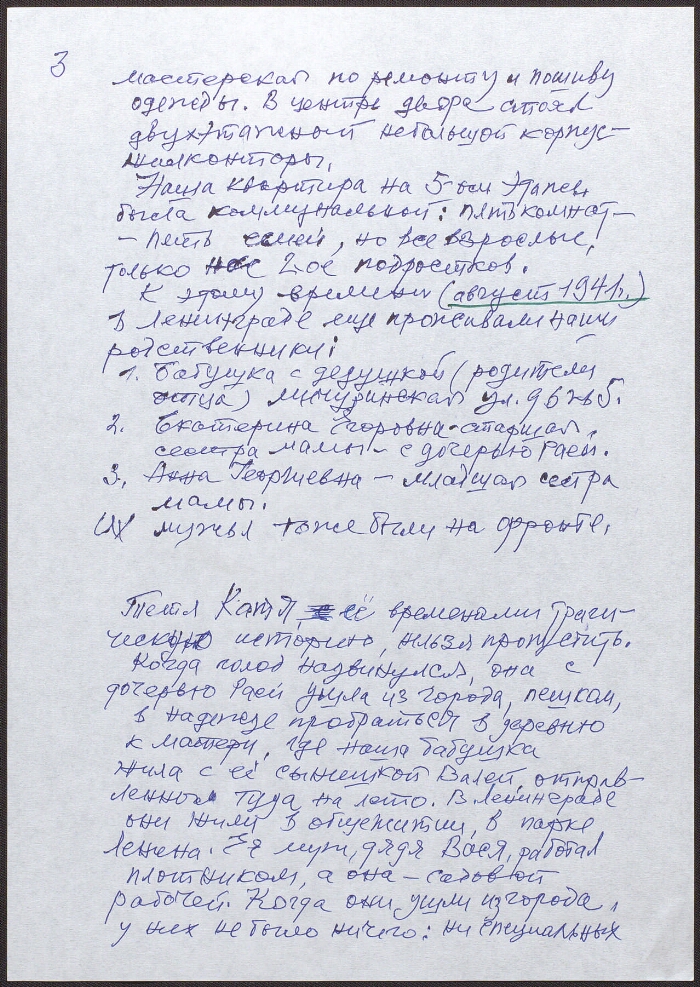 3
мастерская по ремонту и пошиву
одежды. В центре двора стоял
двухэтажной небольшой корпус-
жилконторы.
Наша квартира на 5-ом этаже,
была коммунальной: пять комнат-
- пять семей, но все взрослые,
только нас 2-ое подростков.
К этому времени (август 1941г.)
в Ленинграде еще проживали наши
родственники:
1. Бабушка с дедушкой (родители
отца) Мичуринская ул. 9б кв 5.
2. Екатерина Егоровна-старшая
сестра мамы - с дочерью Раей.
3. Анна Георгиевна - младшая сестра
мамы.
Их мужья тоже были на фронте.
Тетя Катя, её временами траги-
ческую историю, нельзя пропустить.
Когда голод надвинулся, она с
дочерью Раей ушла из города, пешком,
в надежде пробраться в деревню
к матери, где наша бабушка
жила с её сынишкой Валей, отправ-
ленным туда на лето. В Ленинграде
они жили в общежитии, в парке
Ленина. Её муж, дядя Вася, работал
плотником, а она - садовой
рабочей. Когда они ушли из города,
у них не было ничего: ни специальных